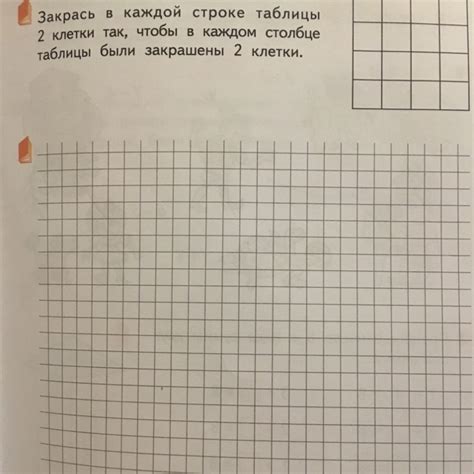 Закрась в каждой строке таблицы
2 клетки так, чтобы в каждом столбце
таблицы были закрашены 2 клетки.